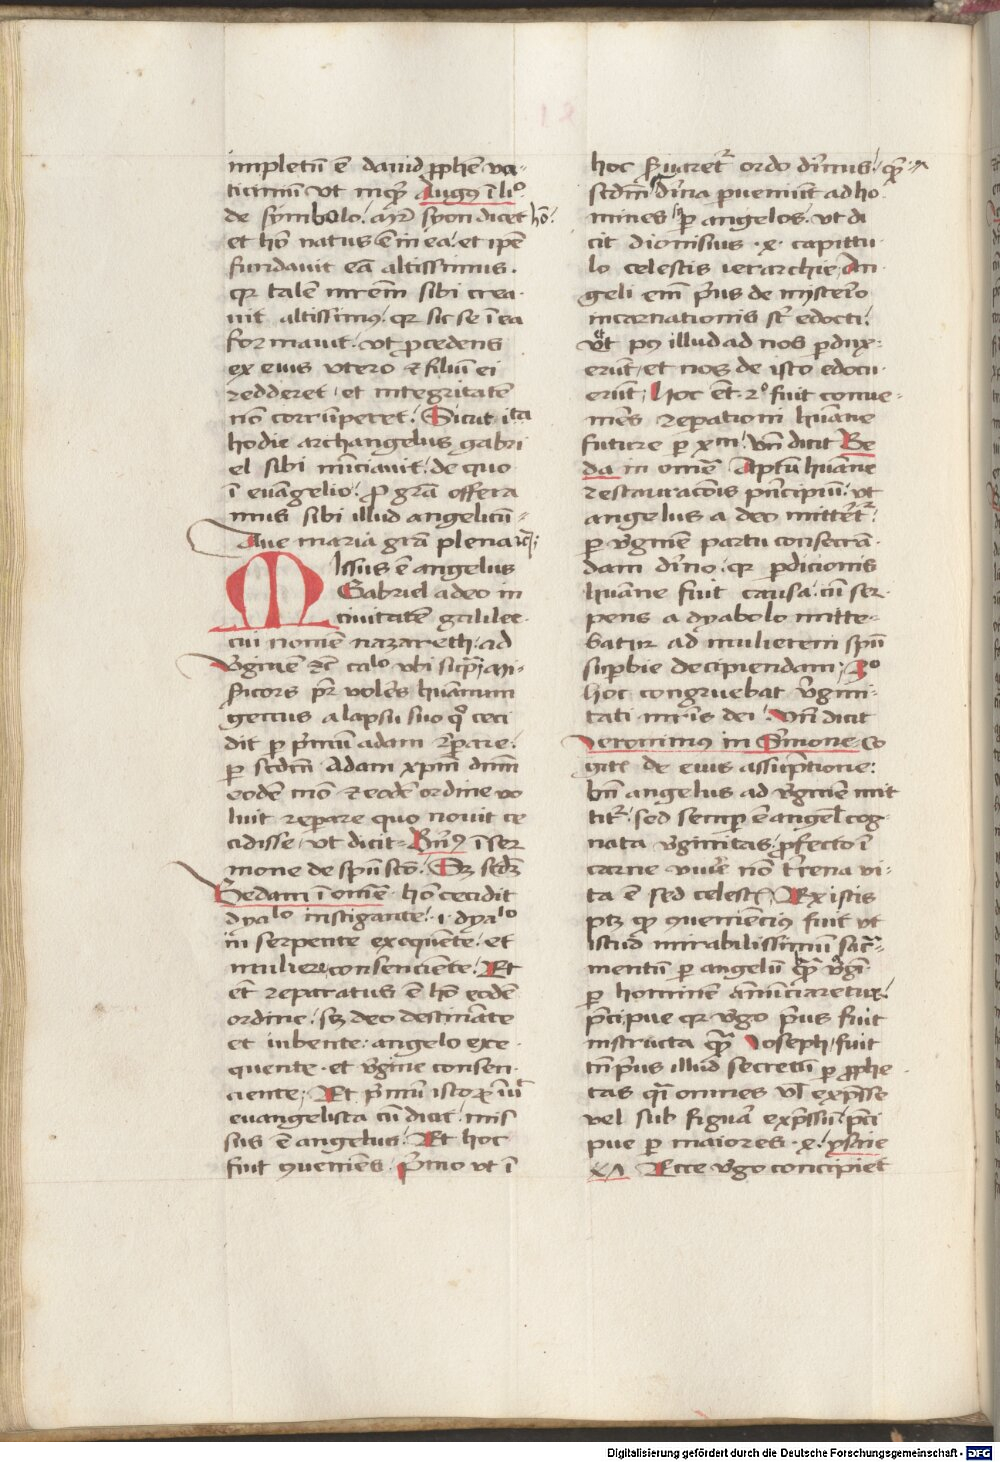 impletū ē dauid ꝓphē va-
ticiniū vt inqͥt Augꝰ ī liᵒ
de symbolo
et hō natus ē in ea et ipē
fundauit eā altissimus.
qr talē mrēm sibi crea-
uit altissimꝰ qr sic se ī ea
formauit vt ꝓcedens
ex eius vtero & filiū ei
redderet et integritatē
nō corrūperet Sicut ita
hodie archangelus gabri
el sibi nūciauit de quo
ī euāgelio ꝓ grā offera
mus sibi illud angelicū
Aue maria grā plena
Missus ē angelus
Gabriel a deo in
ciuitatē galilee
cui nomē nazareth ad
vˀginē &c
ficors pr̄ volēs hūanum
genus a lapsu suo qͦ ceci
dit ꝑ pˀmū adam rˀpare
ꝑ scdm Adam xpm dnm
eodē mō & eodē ordine vo
luit reparare quo nouit ce
cidisse vt dicit Bn̄ꝰ ī ser
mone de spū scō
Bedam ī omē hō cecidit
dyaᶫᵒ instigante .i. dyaᶫᵒ
in serpente exequente et
muliere consenciente Et
et reparatus ē hō eodē
ordine sꝫ deo destināte
et iubente angelo exe-
quente et vˀgine consen-
ciente Et pˀmū istoꝝ
euangelista cū dicit mis
sus ē angelus Et hoc
fuit ꝯueniēs pˀmo vt ī
hoc fˀuaretˀ ordo diuinus
scdm diuina ꝑueniūt ad ho
mines ꝑ angelos vt di
cit dionisius .x. capittu-
lo celestis ierarchie An-
geli em̄ pˀus de misterio
incarnationis st̄ edocti
vt pꝰ illud ad nos ꝑdux-
erūt et nos de isto edocu-
erūt Hoc et 2ᵒ fuit conue-
niēs repationi hūane
future ꝑ xpm Vn̄ dicit Be
da in omē Aptū hūane
restauracōis pˀncipiū vt
angelus a deo mitteretˀ
ꝑ vˀginē partu consecrā-
dam diuino qr ꝑdicionis
hūane fuit causa cū ser-
pens a dyabolo mitte-
batur ad mulierem spū
supˀbie decipiendam 3ᵒ
hoc congruebat vˀgini-
tati mr̄is dei Vn̄ dicit
Ieronimꝰ in Sˀmone co
de eius assūptione
bn̄ angelus ad vˀginē mit
titˀ sed semꝑ ē angelˀ cog-
nata vˀginitas ꝓfecto ī
carne viuˀe nō tˀrena vi-
ta ē sed celestˀ Ex istis
ptꝫ qͦ ꝯueniēciꝰ fuit vt
istud mirabilissimū sacˀ-
mentū ꝑ angelū qͣ vˀgī
ꝑ hominē ānūciaretur
pˀcipue qr vˀgo pˀus fuit
instructa qͣ Ioseph fuit
tn̄ pˀus illud secretū ꝑ ꝓphe-
tas qͣi omnes vl expˀsse
vel sub figura expˀssū pˀci
pue ꝑ maiores
Ecce vˀgo concipiet
Digitalisierung gefördert durch die Deutsche Forschungsgemeinschaft - DFG